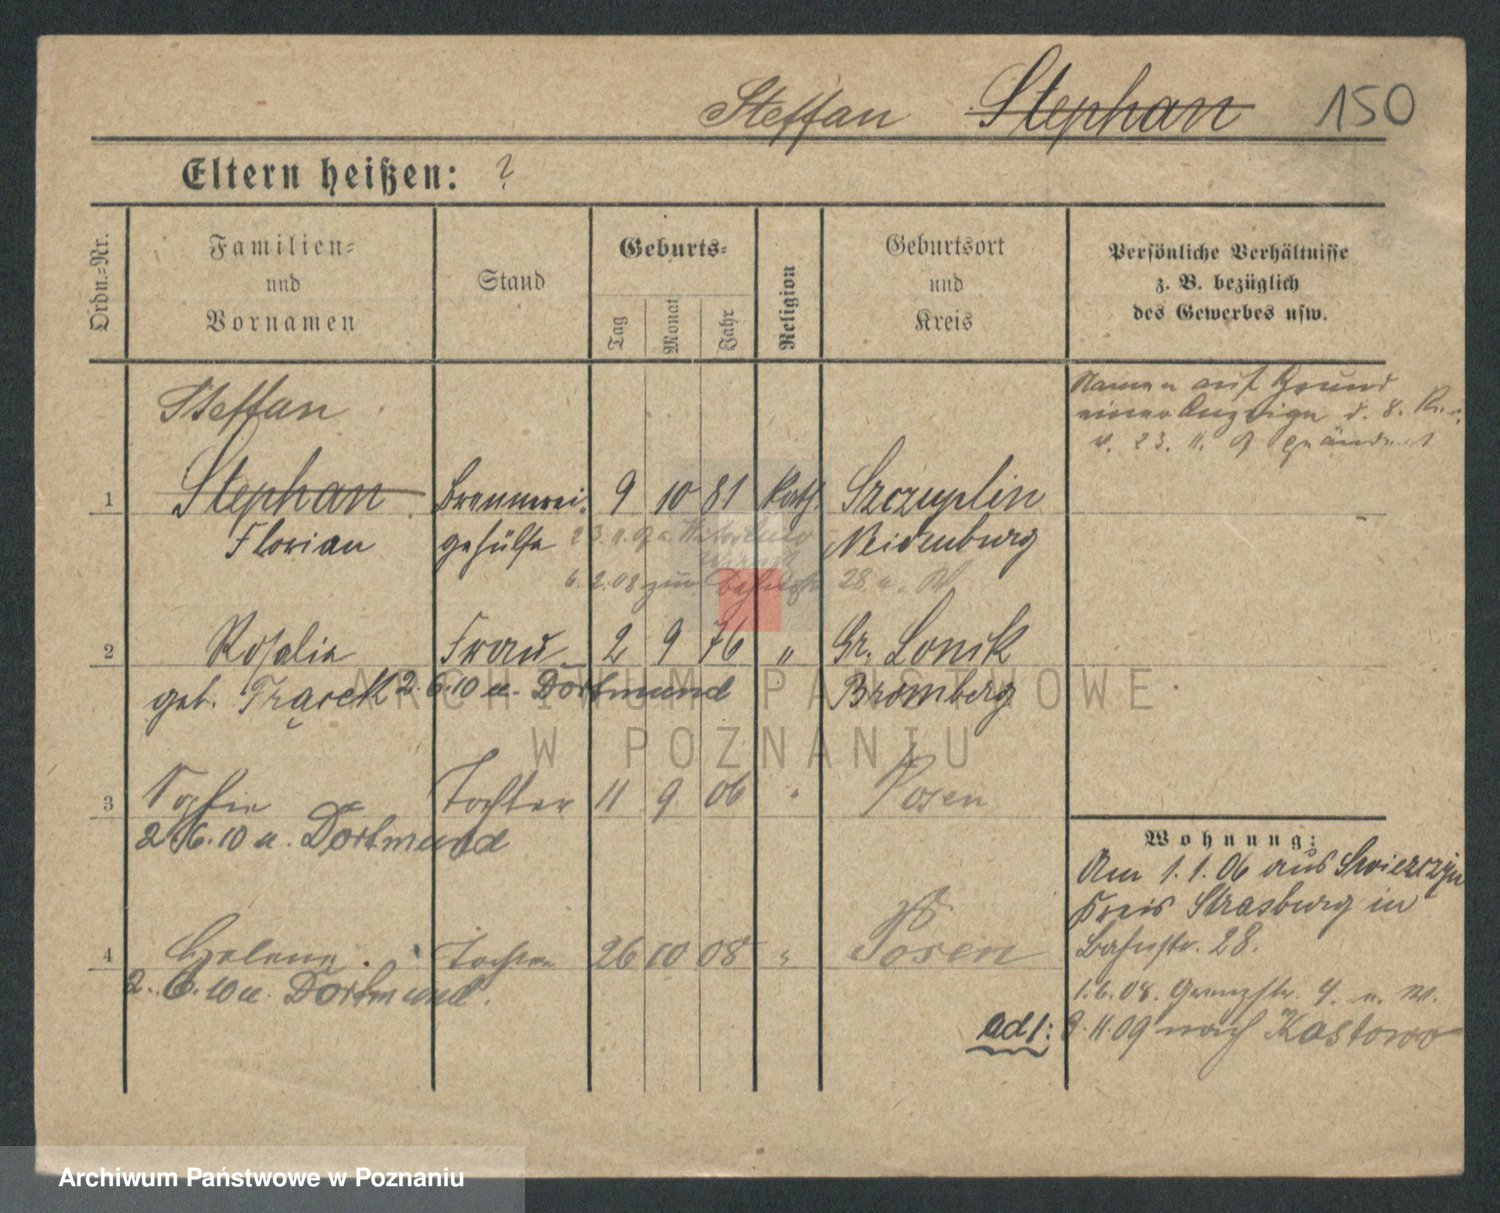 Steffan Stephan 150
Eltern heißen: ?
Ordn.-Nr.
Familien-
und
Vornamen
Stand
Geburts-
Tag
Monat
Jahr
Religion
Geburtsort
und
Kreis
Persönliche Verhältnisse
z. B. bezüglich
des Gewerbes usw.
Namen auf Grund
einer Anzeige d. 8.
v. 23. 11. geändert
Steffan
1 Stephan Brennerei- 9 10 81 Kath. Szczuplin
Florian gehülfe Neidenburg
6. 2. 08 zur. Bahnstr. 28 a. W.
2 Rosalie Frau 2 9 76 " Gr. Lonsk
geb. 2. 6. 10 a. Dortmund Bromberg
3 Sophie Tochter 11 9 06 " Posen
2. 6. 10 a. Dortmund
4 Helene. Tochter 26 10 08 " Posen
2. 6. 10 a. Dortmund.
Wohnung:
Am 1. 1. 06 aus Swierczyn
Kreis Strasburg in
Bahnstr. 28.
1. 6. 08. Grenzstr. 9. a. W.
ad 1: 8. 11. 09 nach Kastowo
ARCHIWUM PAŃSTWOWE
W POZNANIU
Archiwum Państwowe w Poznaniu